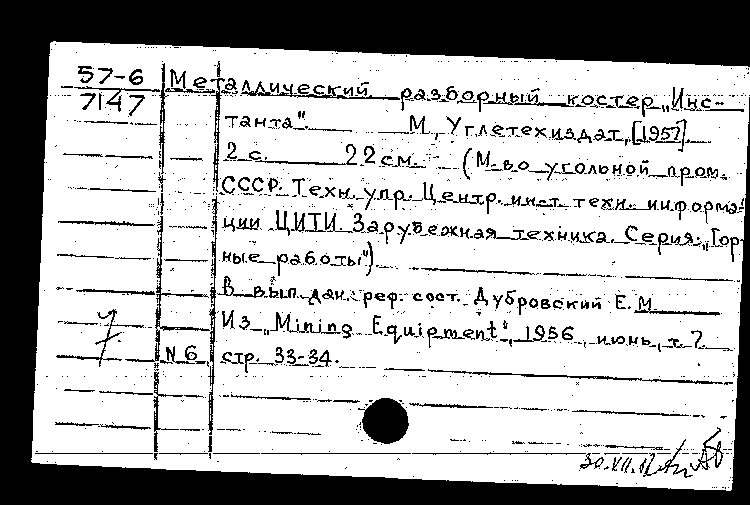 57-6 Металлический разборный костер „Инс-
7147
танта". М, Углетехиздат, [1957].
2 с. 22 см. (М-во угольной пром.
СССР. Техн. упр. Центр. инст. техн. информа-
ции ЦИТИ. Зарубежная техника. Серия: „Гор-
ные работы")
В вып. дан. реф. сост. Дубровский Е. М
Из „Mining Equipment", 1956, июнь, т. 7.
N 6 стр. 33-34.
30.VII.